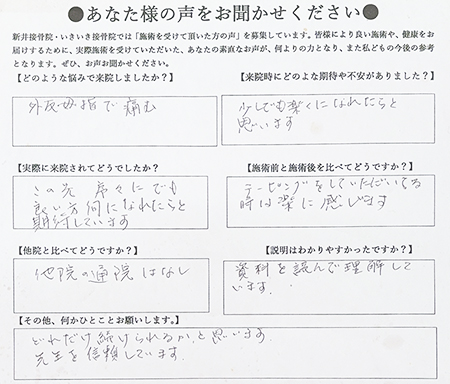 ●あなた様の声をお聞かせください●
新井接骨院・いきいき接骨院では「施術を受けて頂いた方の声」を募集しています。皆様により良い施術や、健康をお
届けするために、実際施術を受けていただいた、あなたの素直なお声が、何よりの力となり、また私どもの今後の参考
となります。ぜひ、お声お聞かせください。
【どのような悩みで来院しましたか？】
外反母指で痛む
【来院時にどのよな期待や不安がありました？】
少しでも楽になれたらと
思います
【実際に来院されてどうでしたか？
この先 序々にでも
良い方向になれたらと
期待しています
【施術前と施術後を比べてどうですか？】
テーピングをしていただいてる
時は楽に感じます
【他院と比べてどうですか？】
他院の通院はなし
【説明はわかりやすかったですか？】
資料を読んで理解して
います．
【その他、何かひとことお願いします。】
どれだけ続けられるか、と思います．
先生を信頼しています．